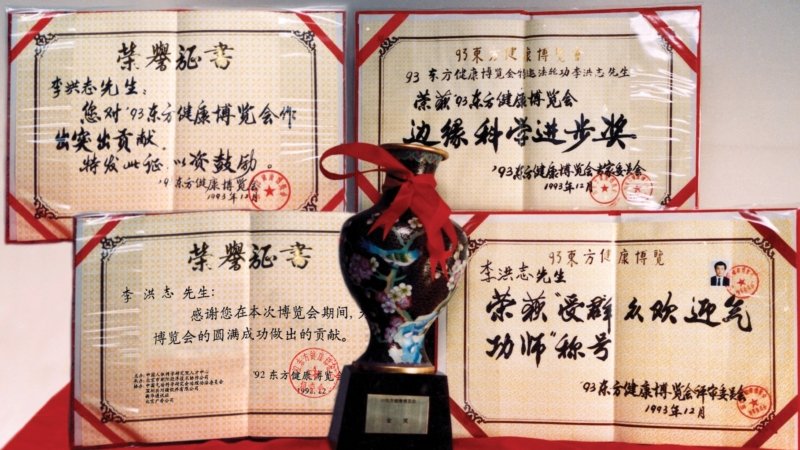 荣誉证书
李洪志先生：
您对'93东方健康博览会作
出突出贡献，
特发此证 以资鼓励。
'93东方健康博览会
1993年12月
93東方健康博览会
93 东方健康博览会特邀法轮功李洪志先生
荣获'93东方健康博览会
边缘科学进步奖
'93东方健康博览会专家委员会
1993年12月
荣誉证书
李 洪 志 先生：
感谢您在本次博览会期间，
博览会的圆满成功做出的贡献。
'92 东方健康博览会
1992.12
93東方健康博览
李洪志先生
荣获"受群众欢迎气
功师"称号
'93东方健康博览会评审委员会
1993年12月